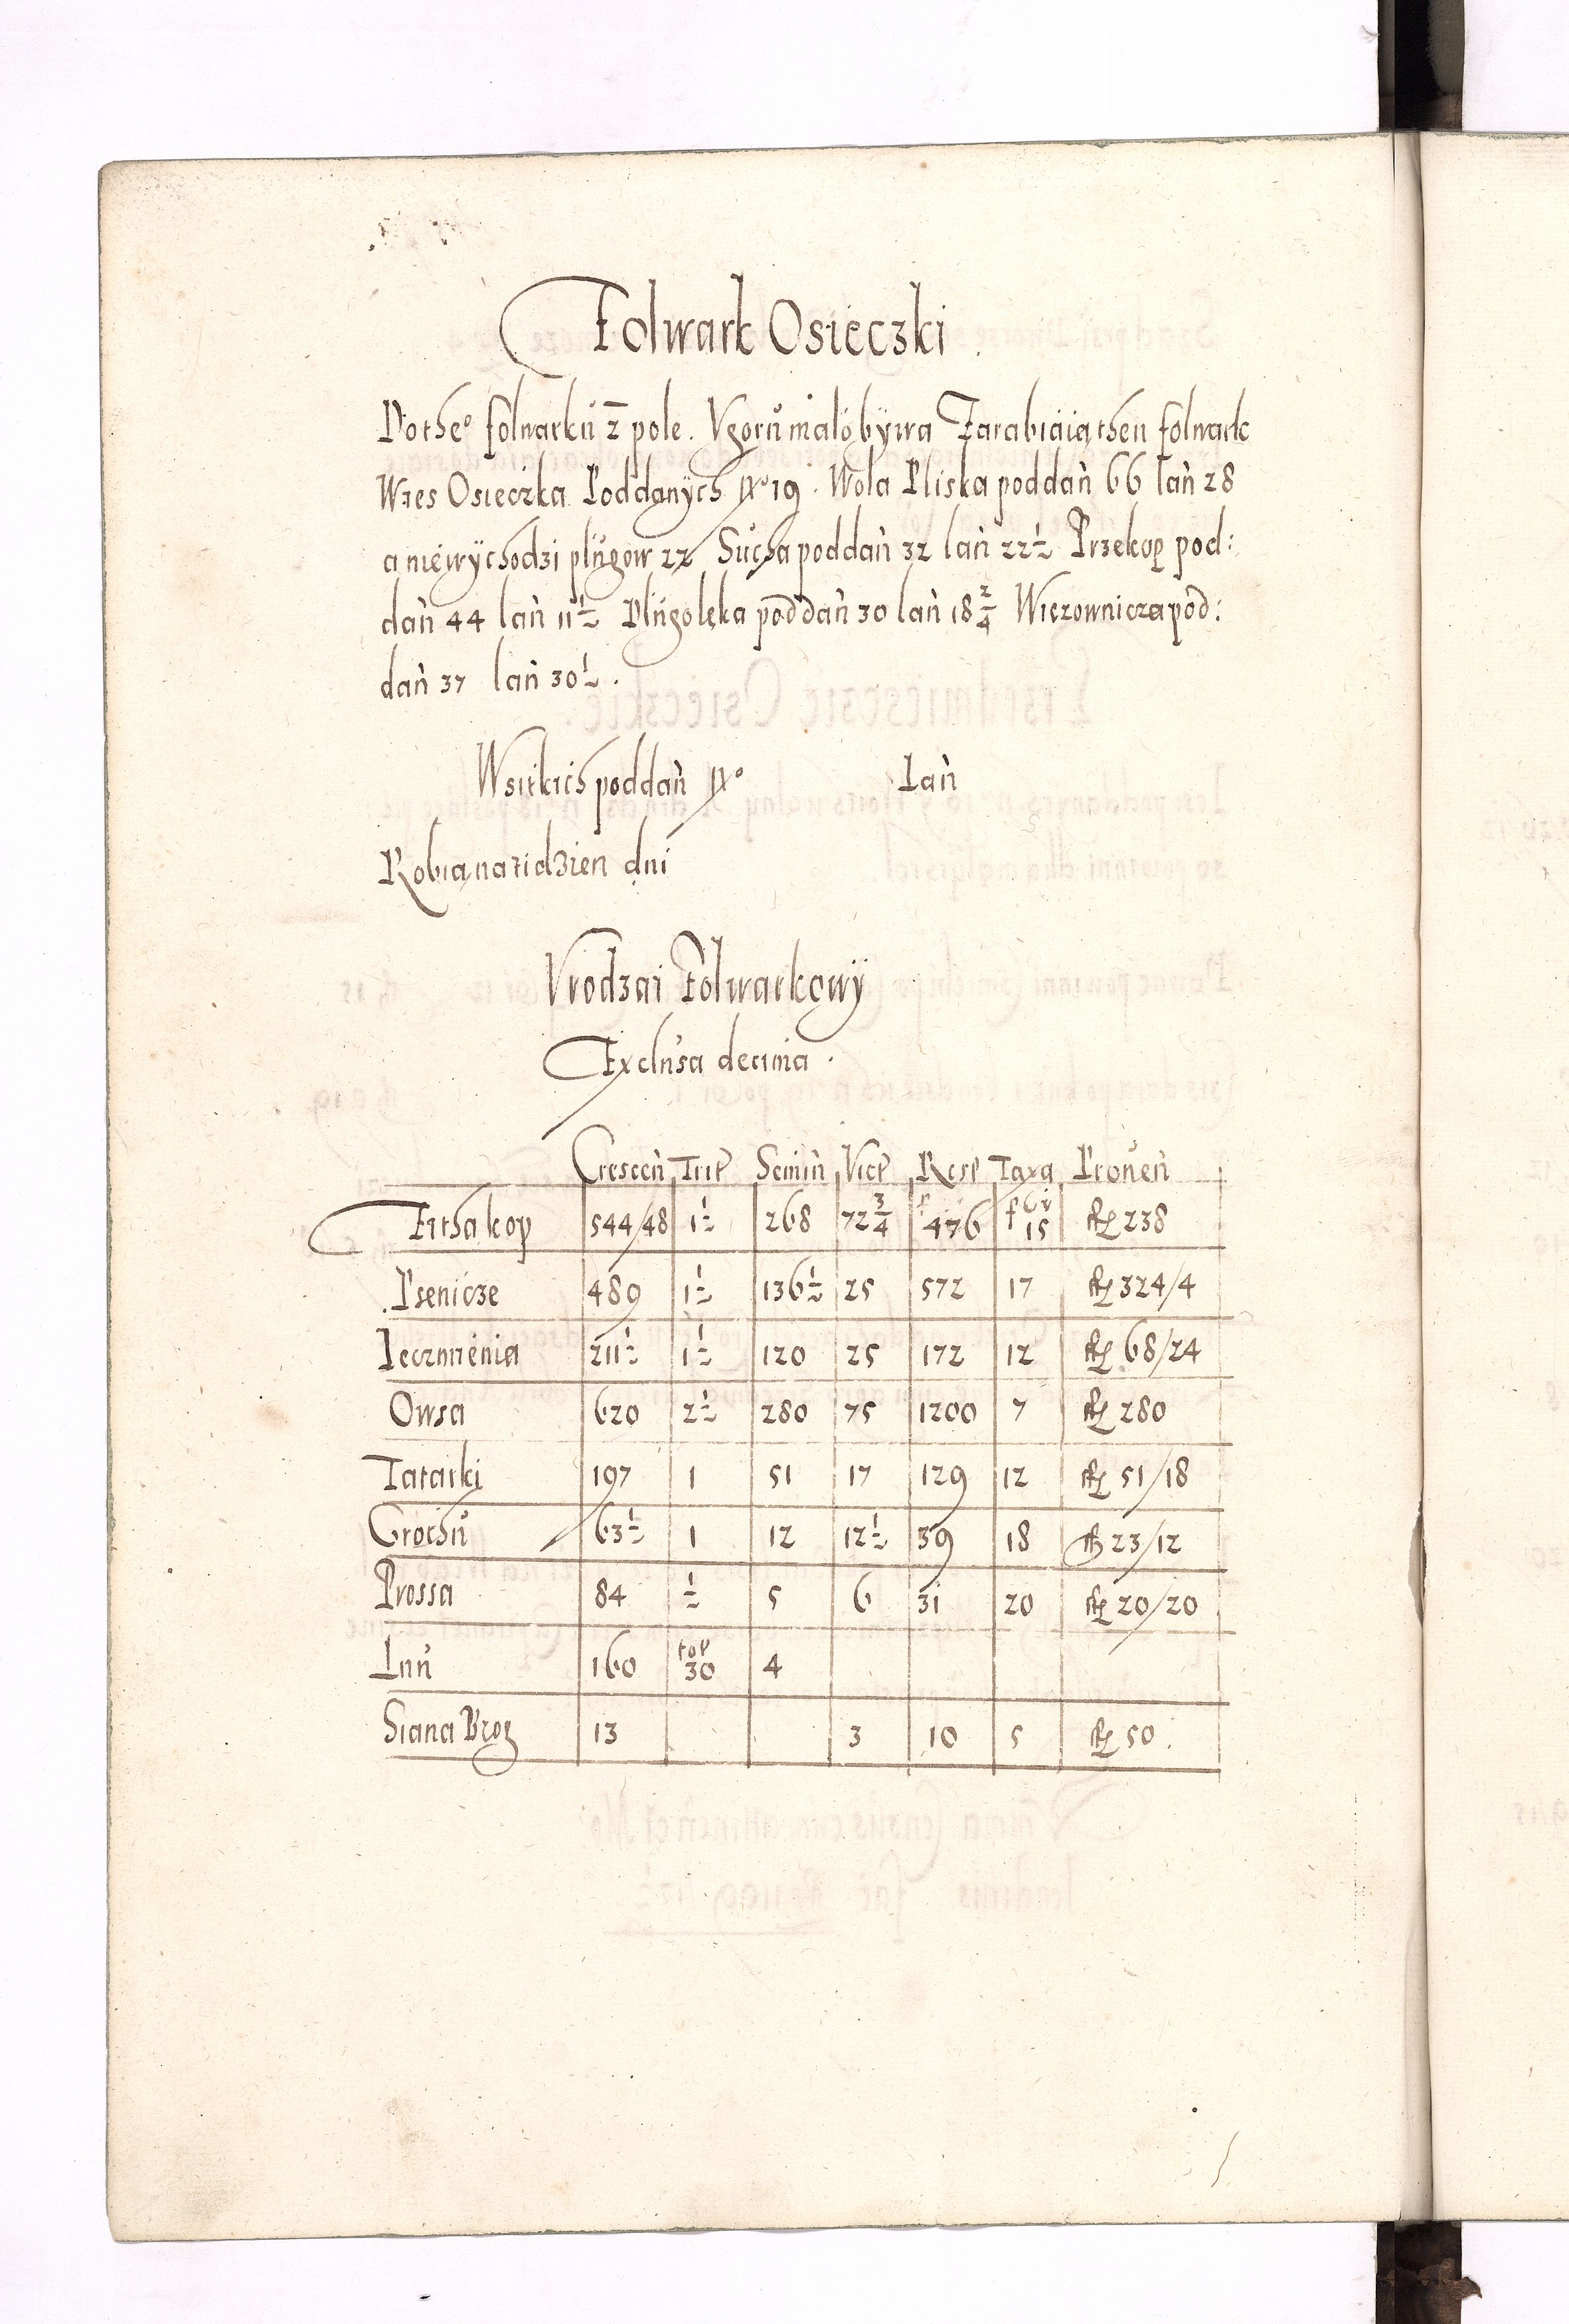 Folwark Osieczki
Dotheº folwarkú z̄ pole. Vgorú maló bÿwa Zarabiaią then folwark
Wies Osieczka Poddanÿch Nº 19. Wola Pliska poddań 66 lań 28
a niewÿchodzi plúgow 22 Súcha poddań 32 lań 22½ Przekop pod:
dań 44 lań 11½ Dlúgolęka poddań 30 lań 18 2/4 Wierownicza pod:
dań 37 lań 30½.
Wsitkich poddań Nº Lań
Robią na tidzien dni
Vrodzai Folwarkowÿ
Exclusa decima.
Crescen̄ Trit Semin̄ Vict Rest Taxa Prouen̄
Zitha kop 544/48 1½ 268 72¾ f 476 f Gr 15 fl 238
Psenicze 489 1½ 136½ 25 572 17 fl 324/4
Ieczmienia 211½ 1½ 120 25 172 12 fl 68/24
Owsa 620 2½ 280 75 1200 7 fl 280
Tatarki 197 1 51 17 129 12 fl 51/18
Grochú 63½ 1 12 12½ 39 18 fl 23/12
Prossa 84 ½ 5 6 31 20 fl 20/20
Lnú 160 top 30 4
Siana Brog 13 3 10 5 fl 50.